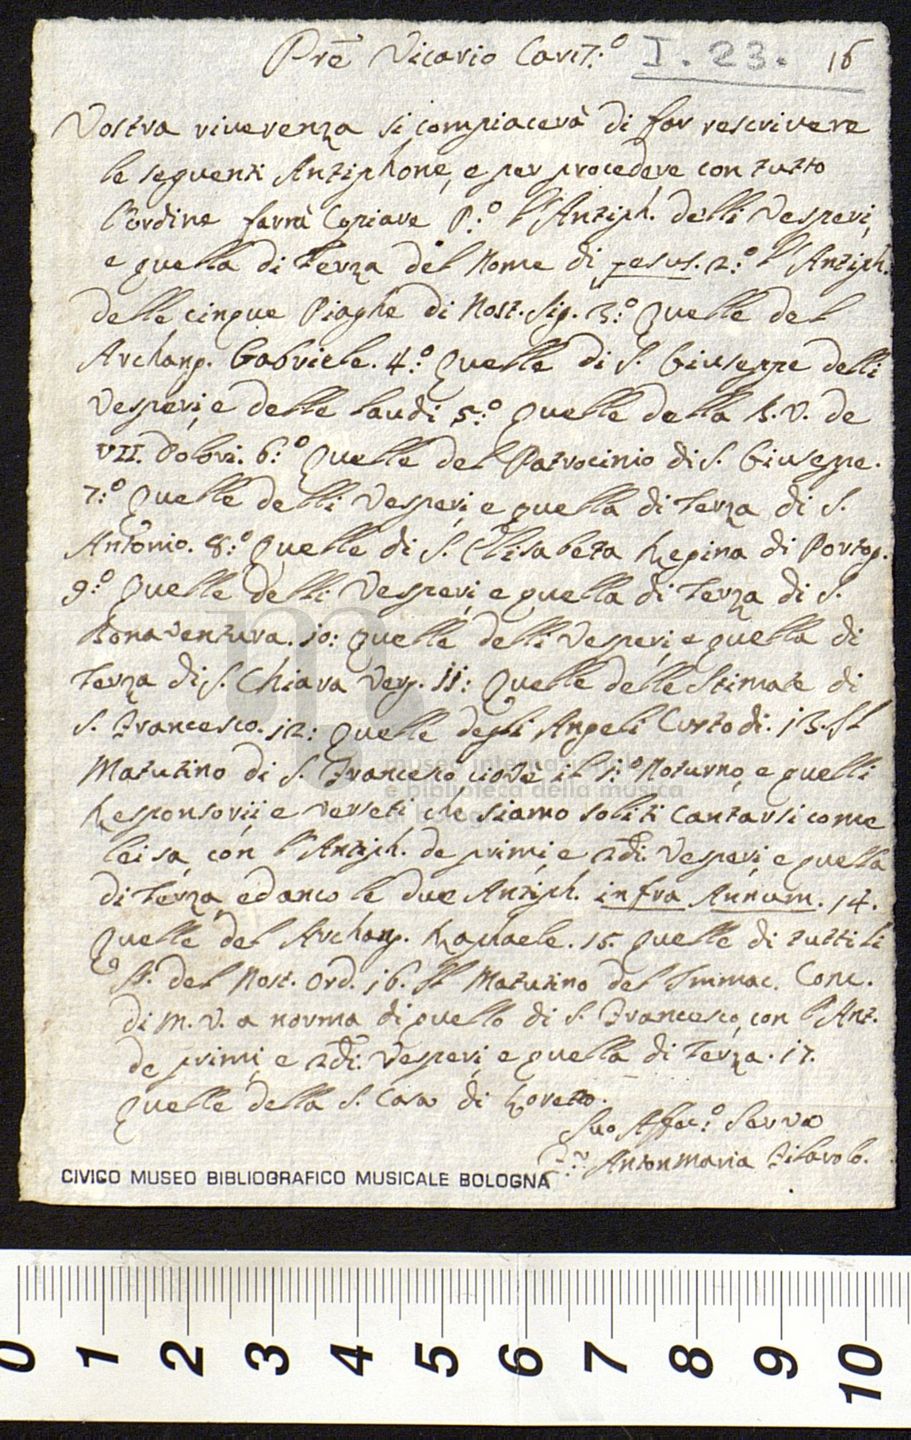 Prē Vicario Cariss.º I. 23. 16
Vostra riverenza si compiacerà di far rescrivere
le seguenti Antiphone, e per procedere con tutto
l'ordine farrà Copiare P.º l'Antiph. delli Vesperi,
e quella di Terza del Nome di Jesus. 2.º l'Antiph.
delle cinque Piaghe di Nost. Sig. 3.º Quelle del
Archang. Gabriele. 4.º Quelle di S. Giuseppe delli
Vesperi, e delle laudi 5.º quelle della B.V. de
VII. Dolori. 6.º Quelle del Patrocinio di S. Giuseppe.
7.º Quelle delli Vesperi, e quella di Terza di S.
Antonio. 8.º Quelle di S. Elisabeta Regina di Portog.
9.º Quelle delli Vesperi, e quella di Terza di S.
Bonaventura. 10: Quelle delli Vesperi, e quella di
Terza di S. Chiara Verg. 11: Quelle delle Stimate di
S. Francesco. 12: Quelle degli Angeli Custodi. 13. Il
Matutino di S. Francesco cioè il 1.º Noturno, e quelli
Responsorii e Verseti che siamo soliti Cantarsi come
lei sa, con l'Antiph. de primi, e 2di. Vesperi, e quella
di Terza, ed anco le due Antiph. infra Annum. 14.
Quelle del Archang. Raffaele. 15. Quelle di tutti li
S. del Nost. Ord. 16. Il Matutino del Immac. Conc.
di M.V. a norma di quello di S. Francesco, con l'Ant.
de primi, e 2di. Vesperi, e quella di Terza. 17.
Quelle della S. Casa di Loreto.
Suo Affec.º Servo
Antonmaria
CIVICO MUSEO BIBLIOGRAFICO MUSICALE BOLOGNA
museo internazionale
e biblioteca della musica
0 1 2 3 4 5 6 7 8 9 10